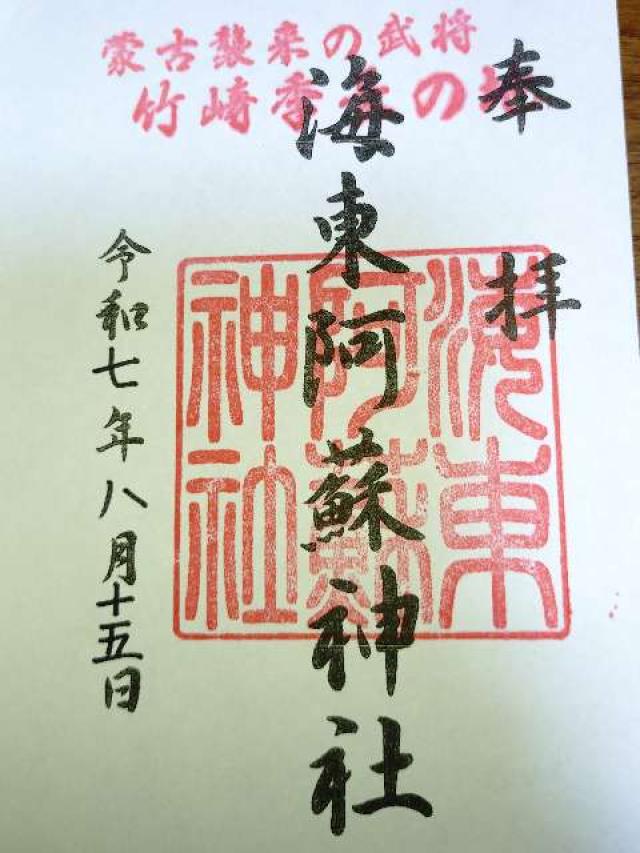 蒙古襲来の武将
竹崎季長の
奉拝
海東阿蘇神社
海東
阿蘇
神社
令和七年八月十五日